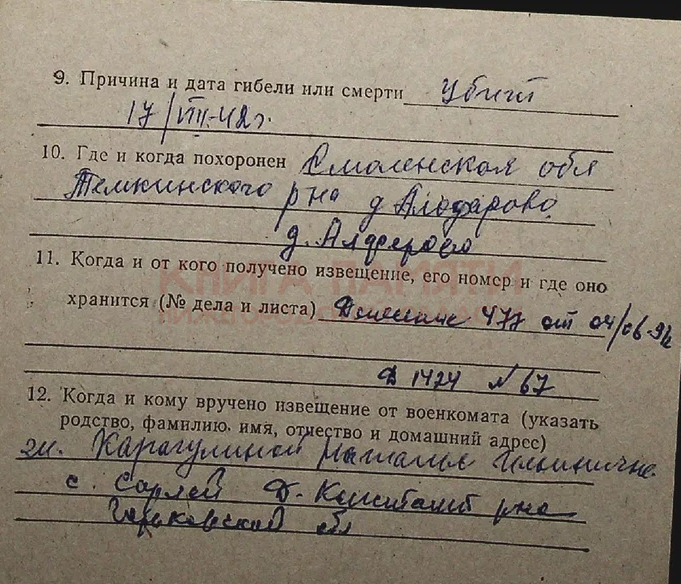 9. Причина и дата гибели или смерти убит
17/VIII-42г.
10. Где и когда похоронен Смоленская обл
Темкинского р на д Алдарово
д. Алферово
11. Когда и от кого получено извещение, его номер и где оно
КНИГА ПАМЯТИ
хранится (№ дела и листа) Донесение 477 от 04/06-92
Д 1424 № 67
12. Когда и кому вручено извещение от военкомата (указать
родство, фамилию, имя, отчество и домашний адрес)
ж. Карагулиной Наталье Ильиничне
с. Сарлей Д. Константи рна
Горьковской обл